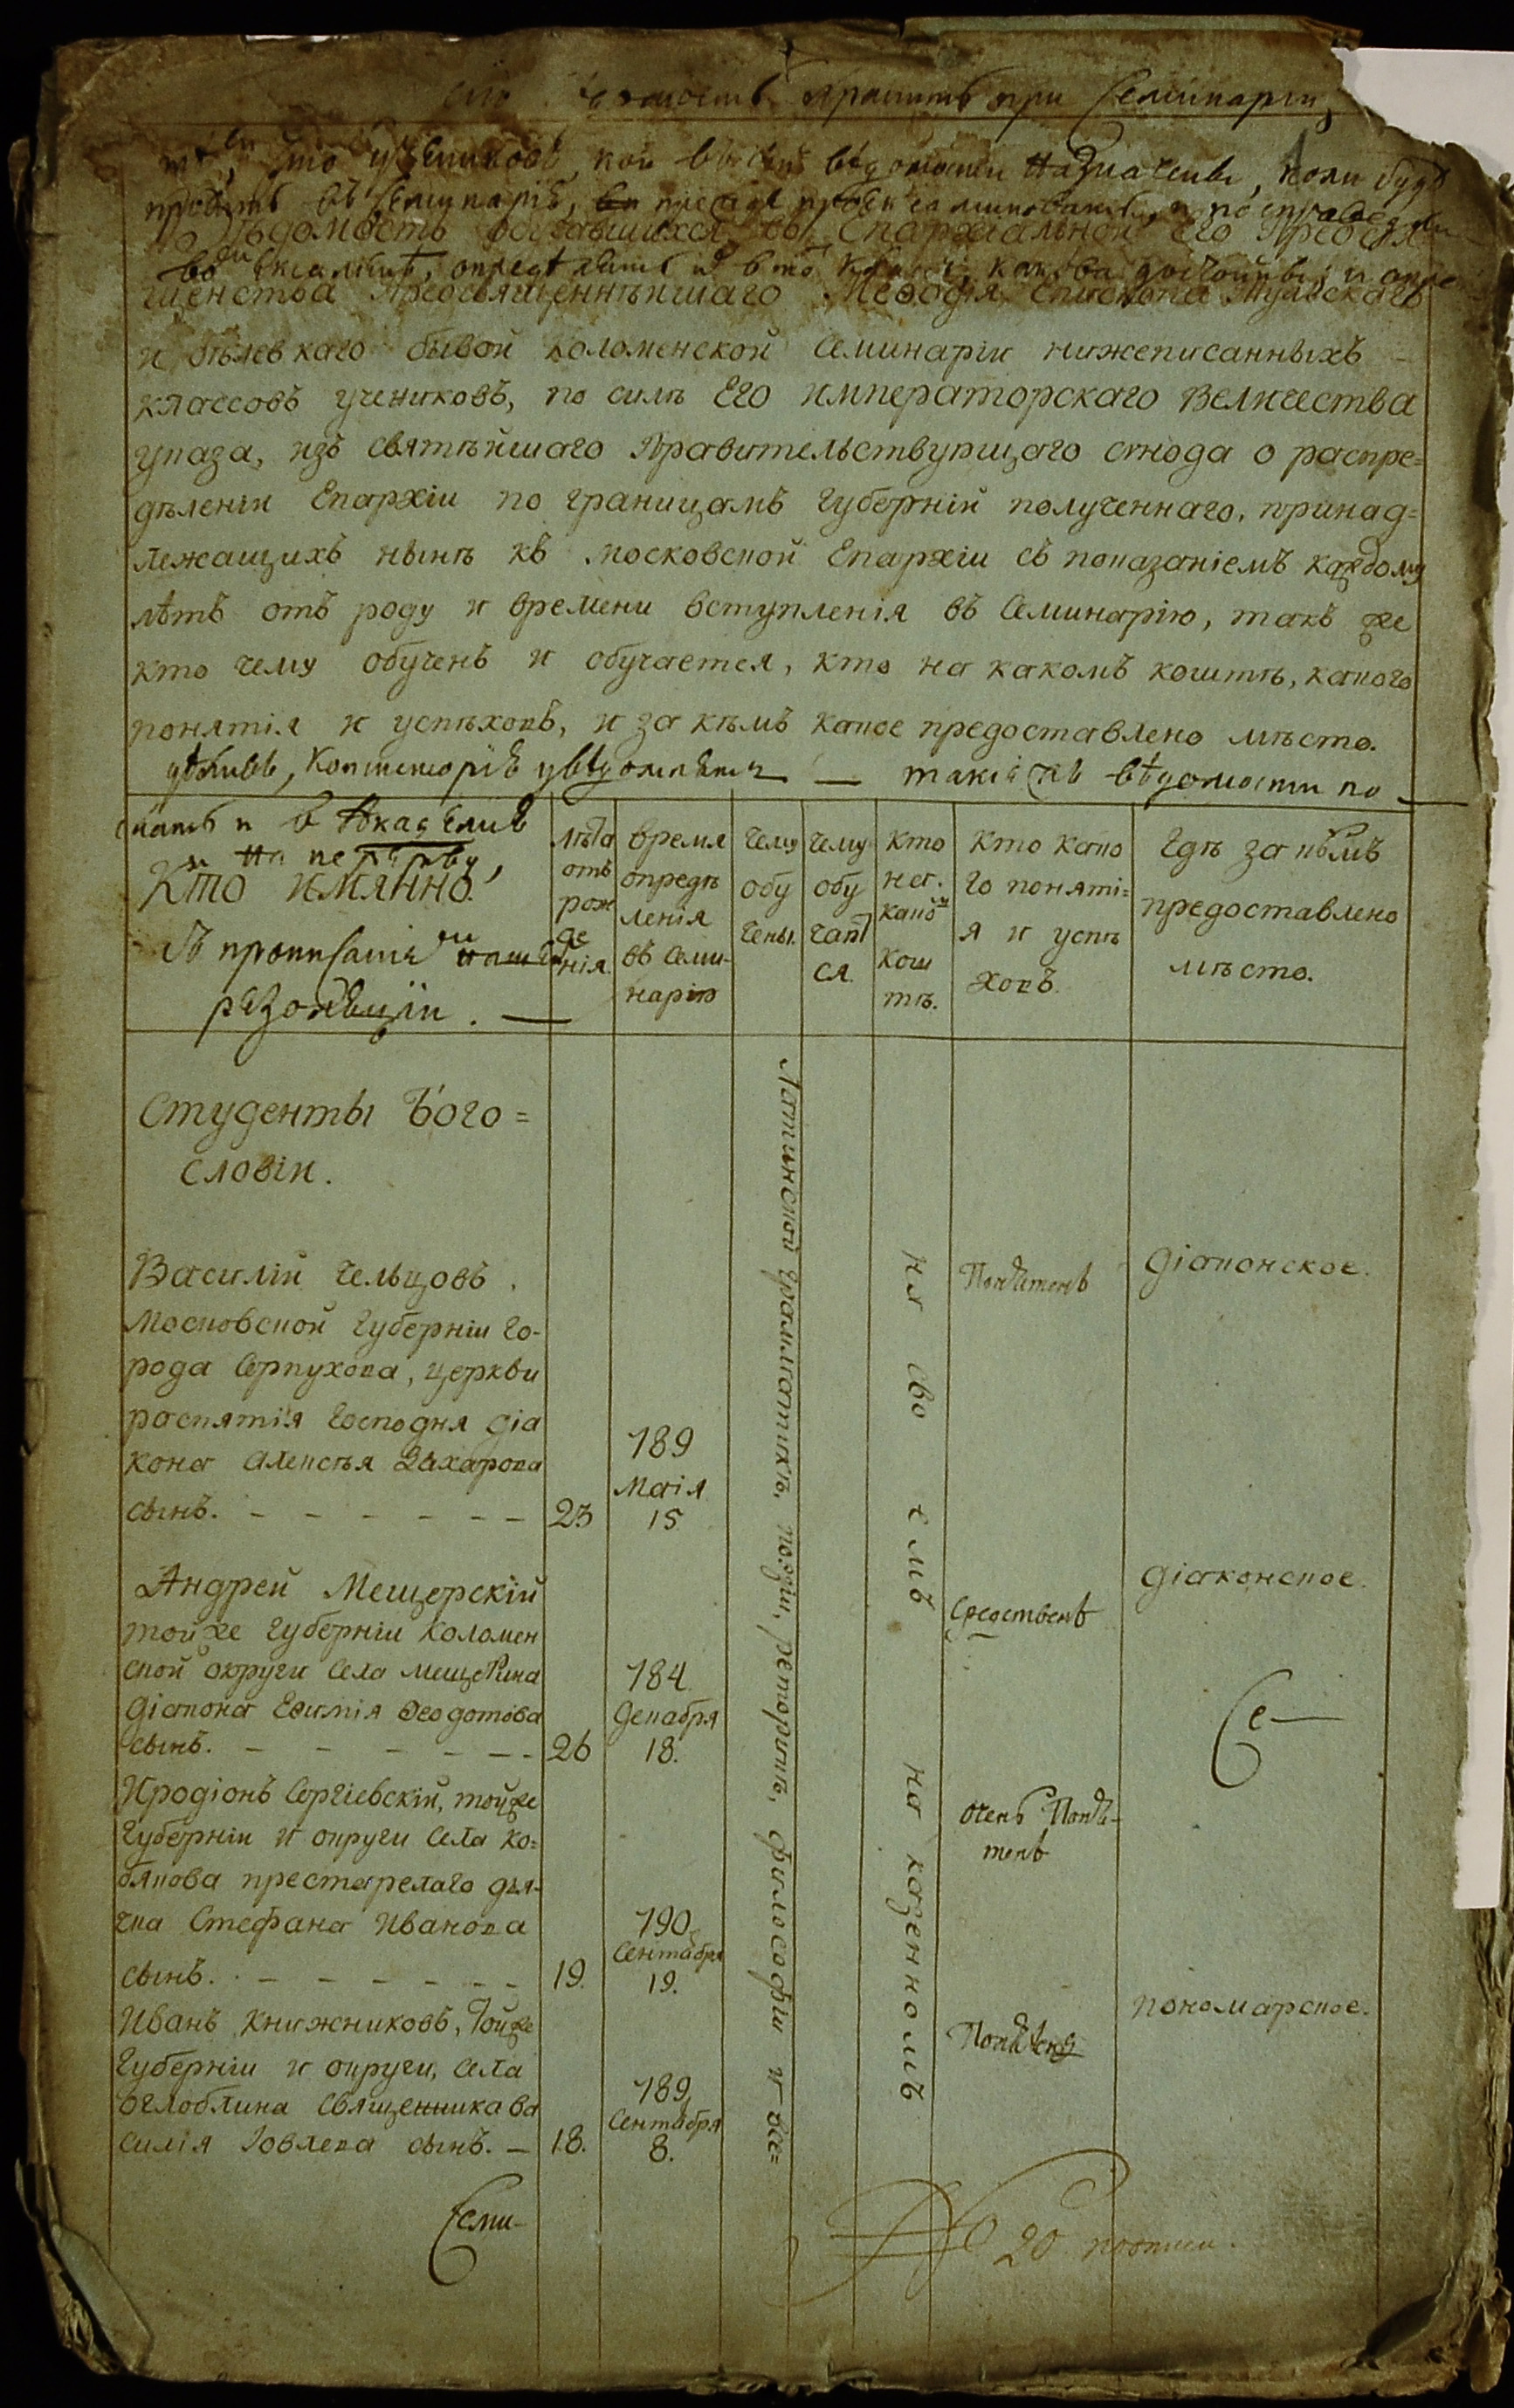 хранить при Семинаріи,
учениковъ, кои въ сей вѣдомости назначены, коли буд
въ Семинаріѣ,
Вѣдомость обучавшихся въ Епархіальной Его Преосвя-
щенства Преосвященнѣйшаго Меѳодія Епископа Тульскаго
и бѣлевкаго бывой коломенской Семинаріи нижеписанныхъ
классовъ учениковъ, по силѣ Его императорскаго Величества
указа, изъ святѣйшаго Правительствующаго синода о распре=
дѣленіи Епархіи по границамъ губерній полученнаго, принад=
лежащихъ нынѣ къ московской Епархіи съ показаніемъ каждому
лѣтъ отъ роду и времени вступленія въ Семинарію, такъ же
кто чему обученъ и обучается, кто на какомъ коштѣ, какого
понятія и успѣховъ, и за кѣмъ какое предоставлено мѣсто.
Консисторіѣ — такія вѣдомости по
Кто имянно.
резолюціи. —
лѣта отъ рож де нія.
время опредѣ ленія въ Семи- нарію
чему обу чены.
чему обу чает ся.
кто на какомъ кош тѣ.
Кто како го поняті= я и успѣ ховъ.
Гдѣ за кѣмъ предоставлено мѣсто.
Студенты Бого=
словіи.
Латинской грамматикѣ, поэзіи, реторикѣ, философіи и бое=
на сво емъ
на казенномъ
Василій Чельцовъ.
Московской губерніи го-
рода Серпухова, церкви
распятія Господня діа
кона Алексѣя Захарова
сынъ. - - - - - - 23
189 Маія 15
Понятенъ
діаконское.
Андрей Мещерскій
тойже губерніи Коломен
ской округи села мещерина
діакона Евѳимія Ѳеодотова
сынъ. - - - - - - 26
184 декабря 18.
Средственъ
діаконское.
Иродіонъ Сергіевскій, тойже
губерніи и округи села ко=
бякова престарелаго дья-
чка Стефана Иванова
сынъ. - - - - - - 19.
190 Сентября 19.
очень Поня-
тенъ
Иванъ Книжниковъ, Тойже
губерніи и округи, села
оглоблина священника ва
силія Іовлева сынъ. — 18.
189 Сентября 8.
Понятенъ
пономарское.
Се-
Семи-
20